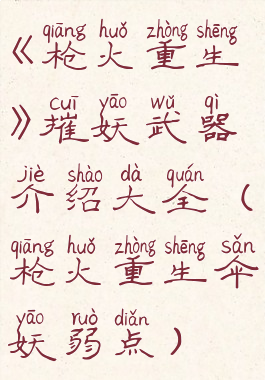 qiāng huǒ zhòng shēng
《枪火重生
cuī yāo wǔ qì
》摧妖武器
jiè shào dà quán
介绍大全（
qiāng huǒ zhòng shēng sǎn
枪火重生伞
yāo ruò diǎn
妖弱点）